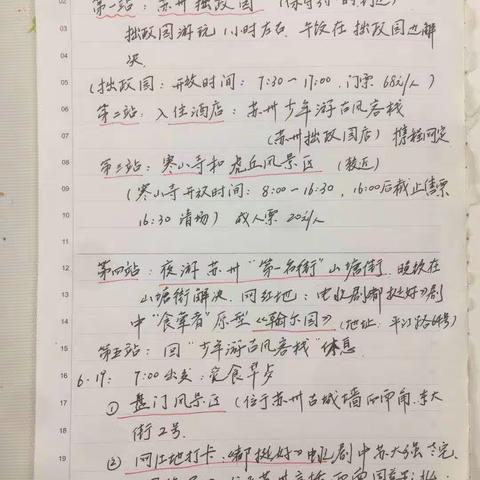 第一站：苏州拙政园
拙政园游玩1小时左右，午饭在拙政园边解
决
（拙政园：开放时间：7:30—17:00，门票68元/人）
第二站：入住酒店：苏州少年游古风客栈
（苏州拙政园店）携程网定
第三站：寒山寺和虎丘风景区（较近）
（寒山寺开放时间：8:00—16:30，16:00后截止售票
16:30清场）成人票20元/人
第四站：夜游苏州"第一名街"山塘街，晚饭在
山塘街解决，网红地：电视剧《都挺好》剧
中"食荤者"原型《翰尔园》（地址：平江路64号）
第五站：回"少年游古风客栈"休息
6.19： 7:00出发：觅食早点
① 盘门风景区（位于苏州古城墙西南角，东大
街2号
② 网红地打卡：《都挺好》电视剧中苏大强老宅，
02
03
04
05
06
07
08
09
10
11
12
13
14
15
16
17
18
19